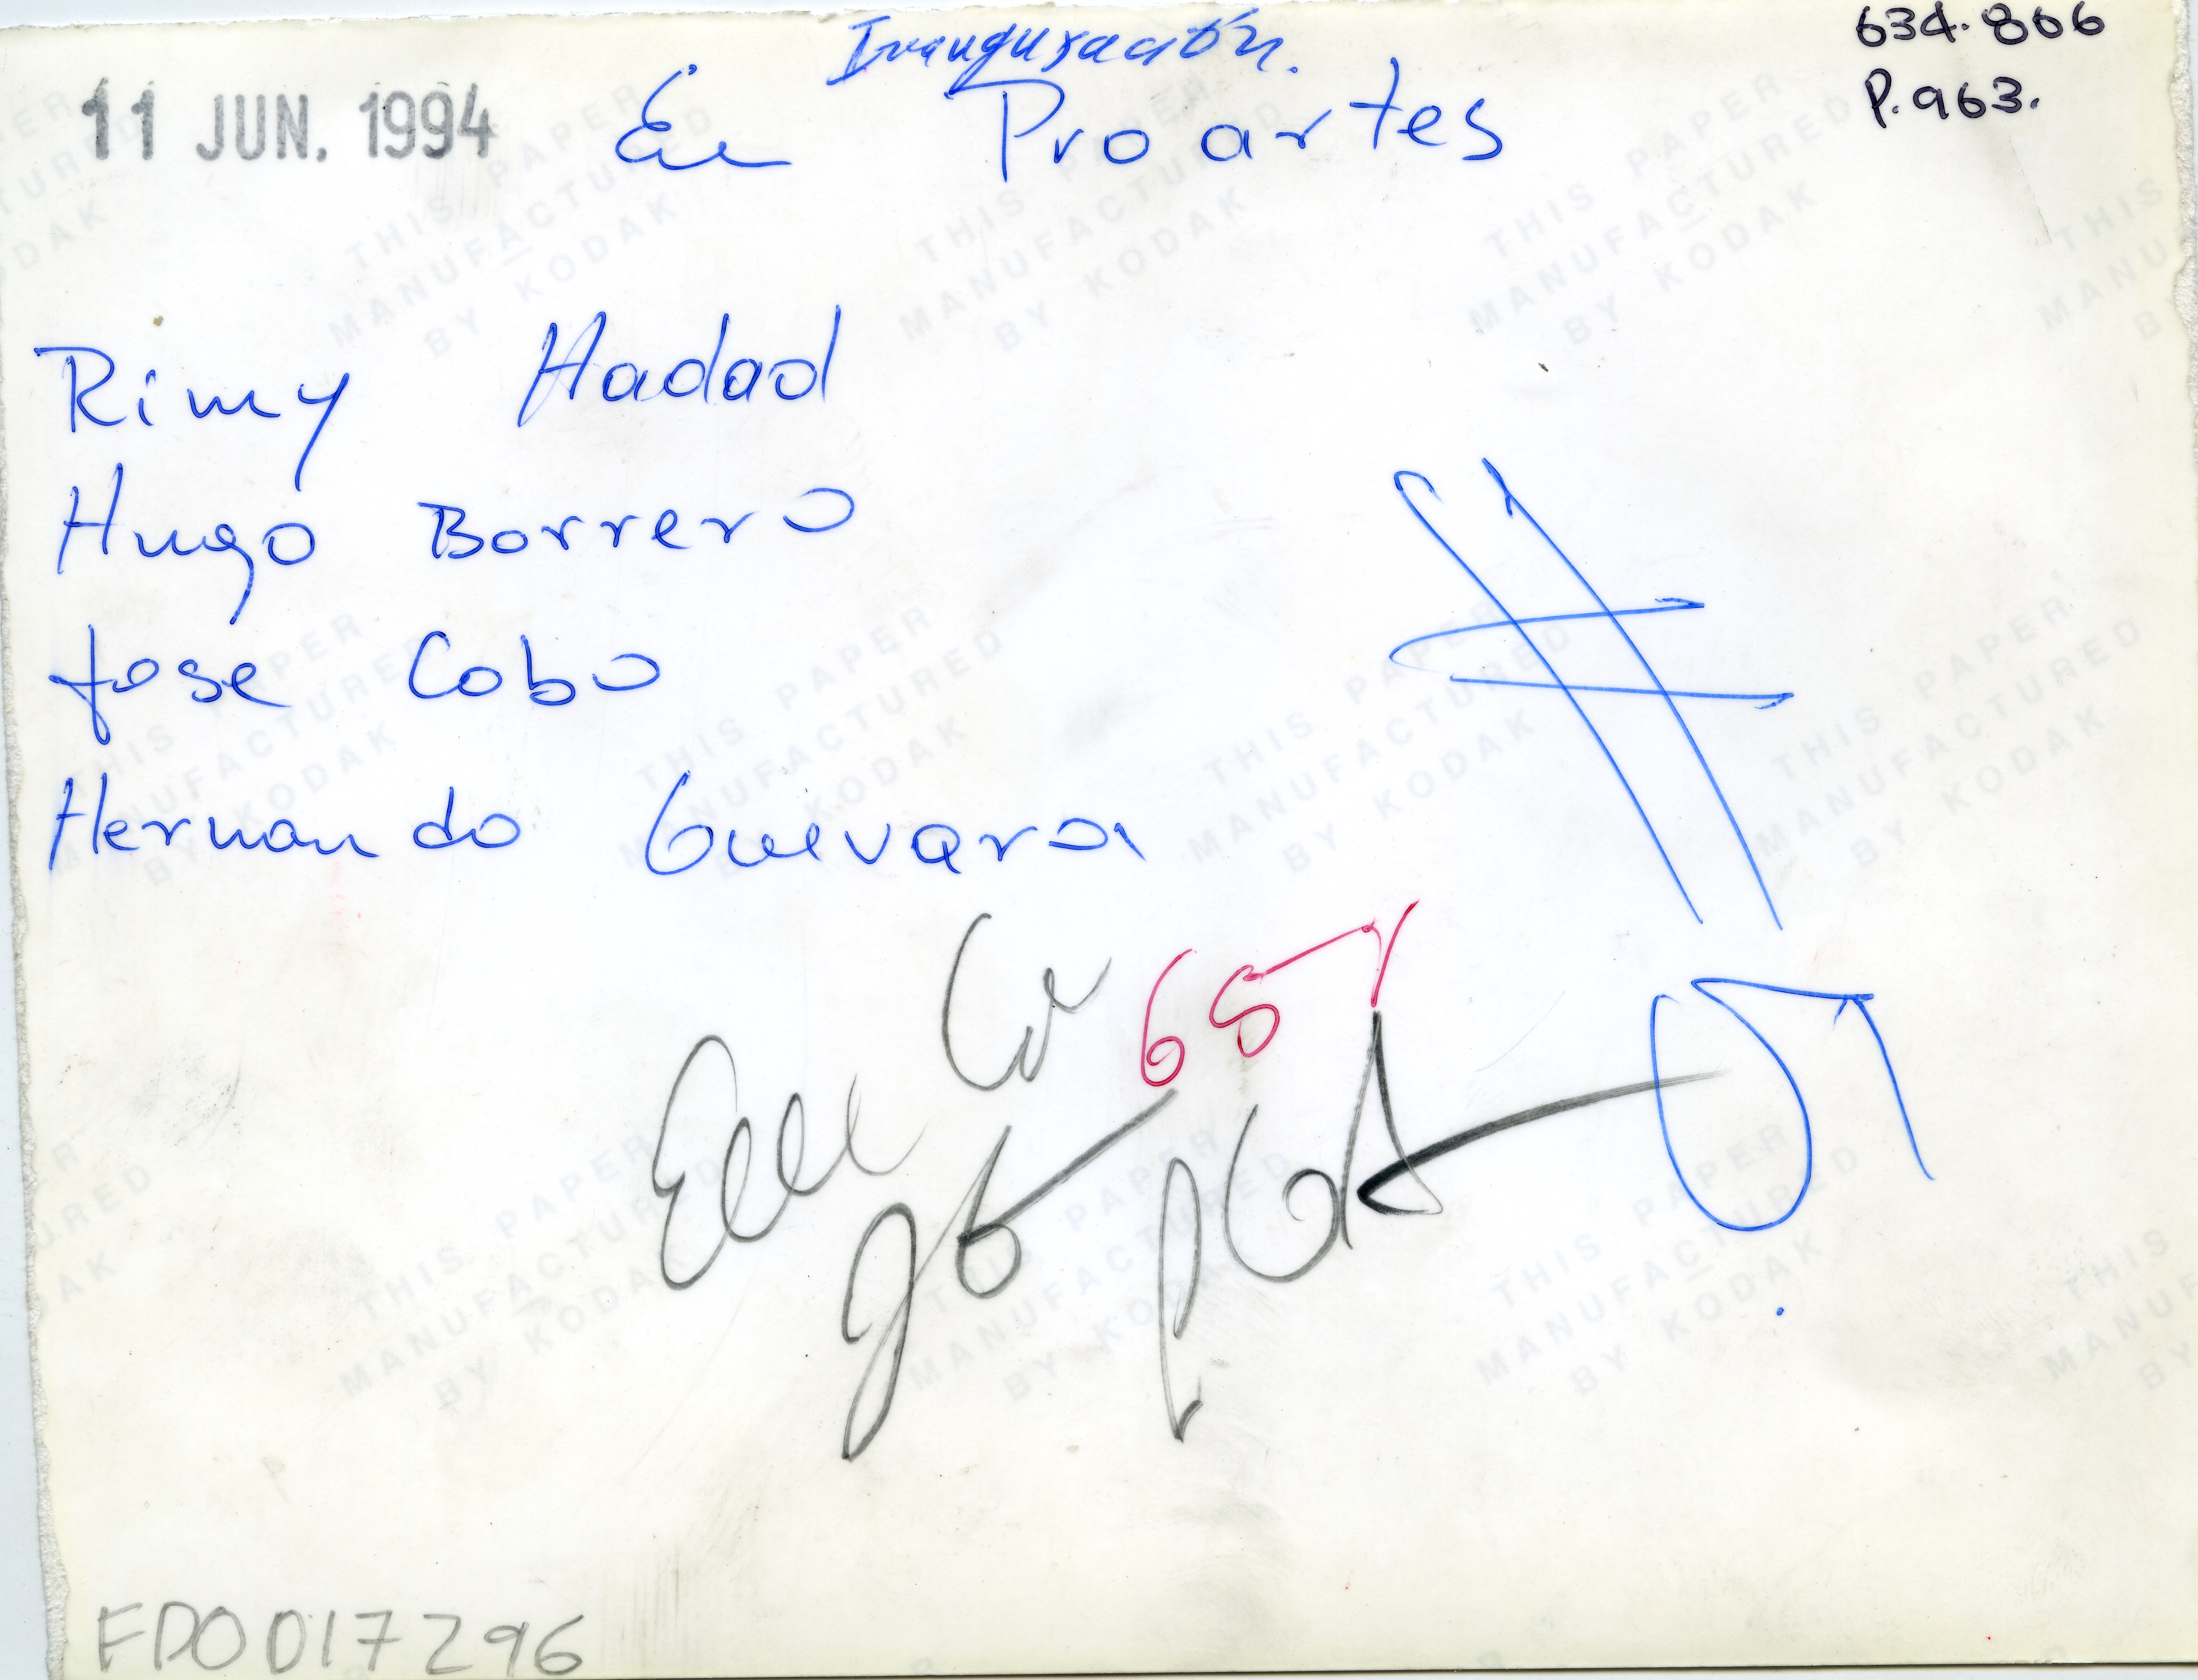 Inauguración.
634.806
11 JUN. 1994 En Proartes
P. 963.
Rimy Hadad
Hugo Borrero
Jose Cobo
Hernando Guevara
#
65%
01
FD0017296
THIS PAPER
MANUFACTURED
BY KODAK